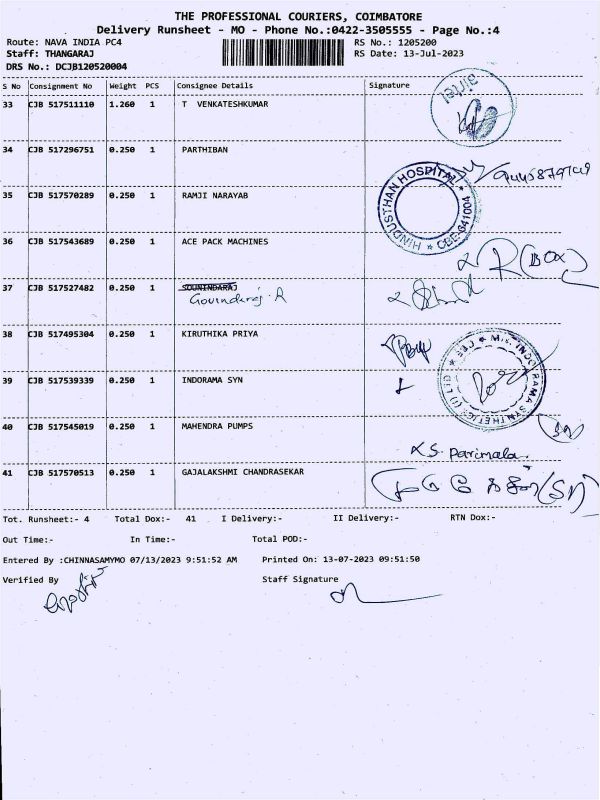 THE PROFESSIONAL COURIERS, COIMBATORE
Delivery Runsheet - MO - Phone No.:0422-3505555 - Page No.:4
Route: NAVA INDIA PC4 RS No.: 1205200
Staff: THANGARAJ RS Date: 13-Jul-2023
DRS No.: DCJB120520004
S No Consignment No Weight PCS Consignee Details Signature
33 CJB 517511110 1.260 1 T VENKATESHKUMAR
airtel
34 CJB 517296751 0.250 1 PARTHIBAN
35 CJB 517570289 0.250 1 RAMJI NARAYAB
HINDUSTHAN HOSPITAL * CBE-641004 *
36 CJB 517543689 0.250 1 ACE PACK MACHINES
(BOX)
37 CJB 517527482 0.250 1 SOUNINDARAJ
Govindaraj. A
38 CJB 517495304 0.250 1 KIRUTHIKA PRIYA
39 CJB 517539339 0.250 1 INDORAMA SYN
M/s. INDO RAMA SYNTHETICS (I) LTD
40 CJB 517545019 0.250 1 MAHENDRA PUMPS
S. Parimala
41 CJB 517570513 0.250 1 GAJALAKSHMI CHANDRASEKAR
Tot. Runsheet:- 4 Total Dox:- 41 I Delivery:- II Delivery:- RTN Dox:-
Out Time:- In Time:- Total POD:-
Entered By :CHINNASAMYMO 07/13/2023 9:51:52 AM Printed On: 13-07-2023 09:51:50
Verified By Staff Signature